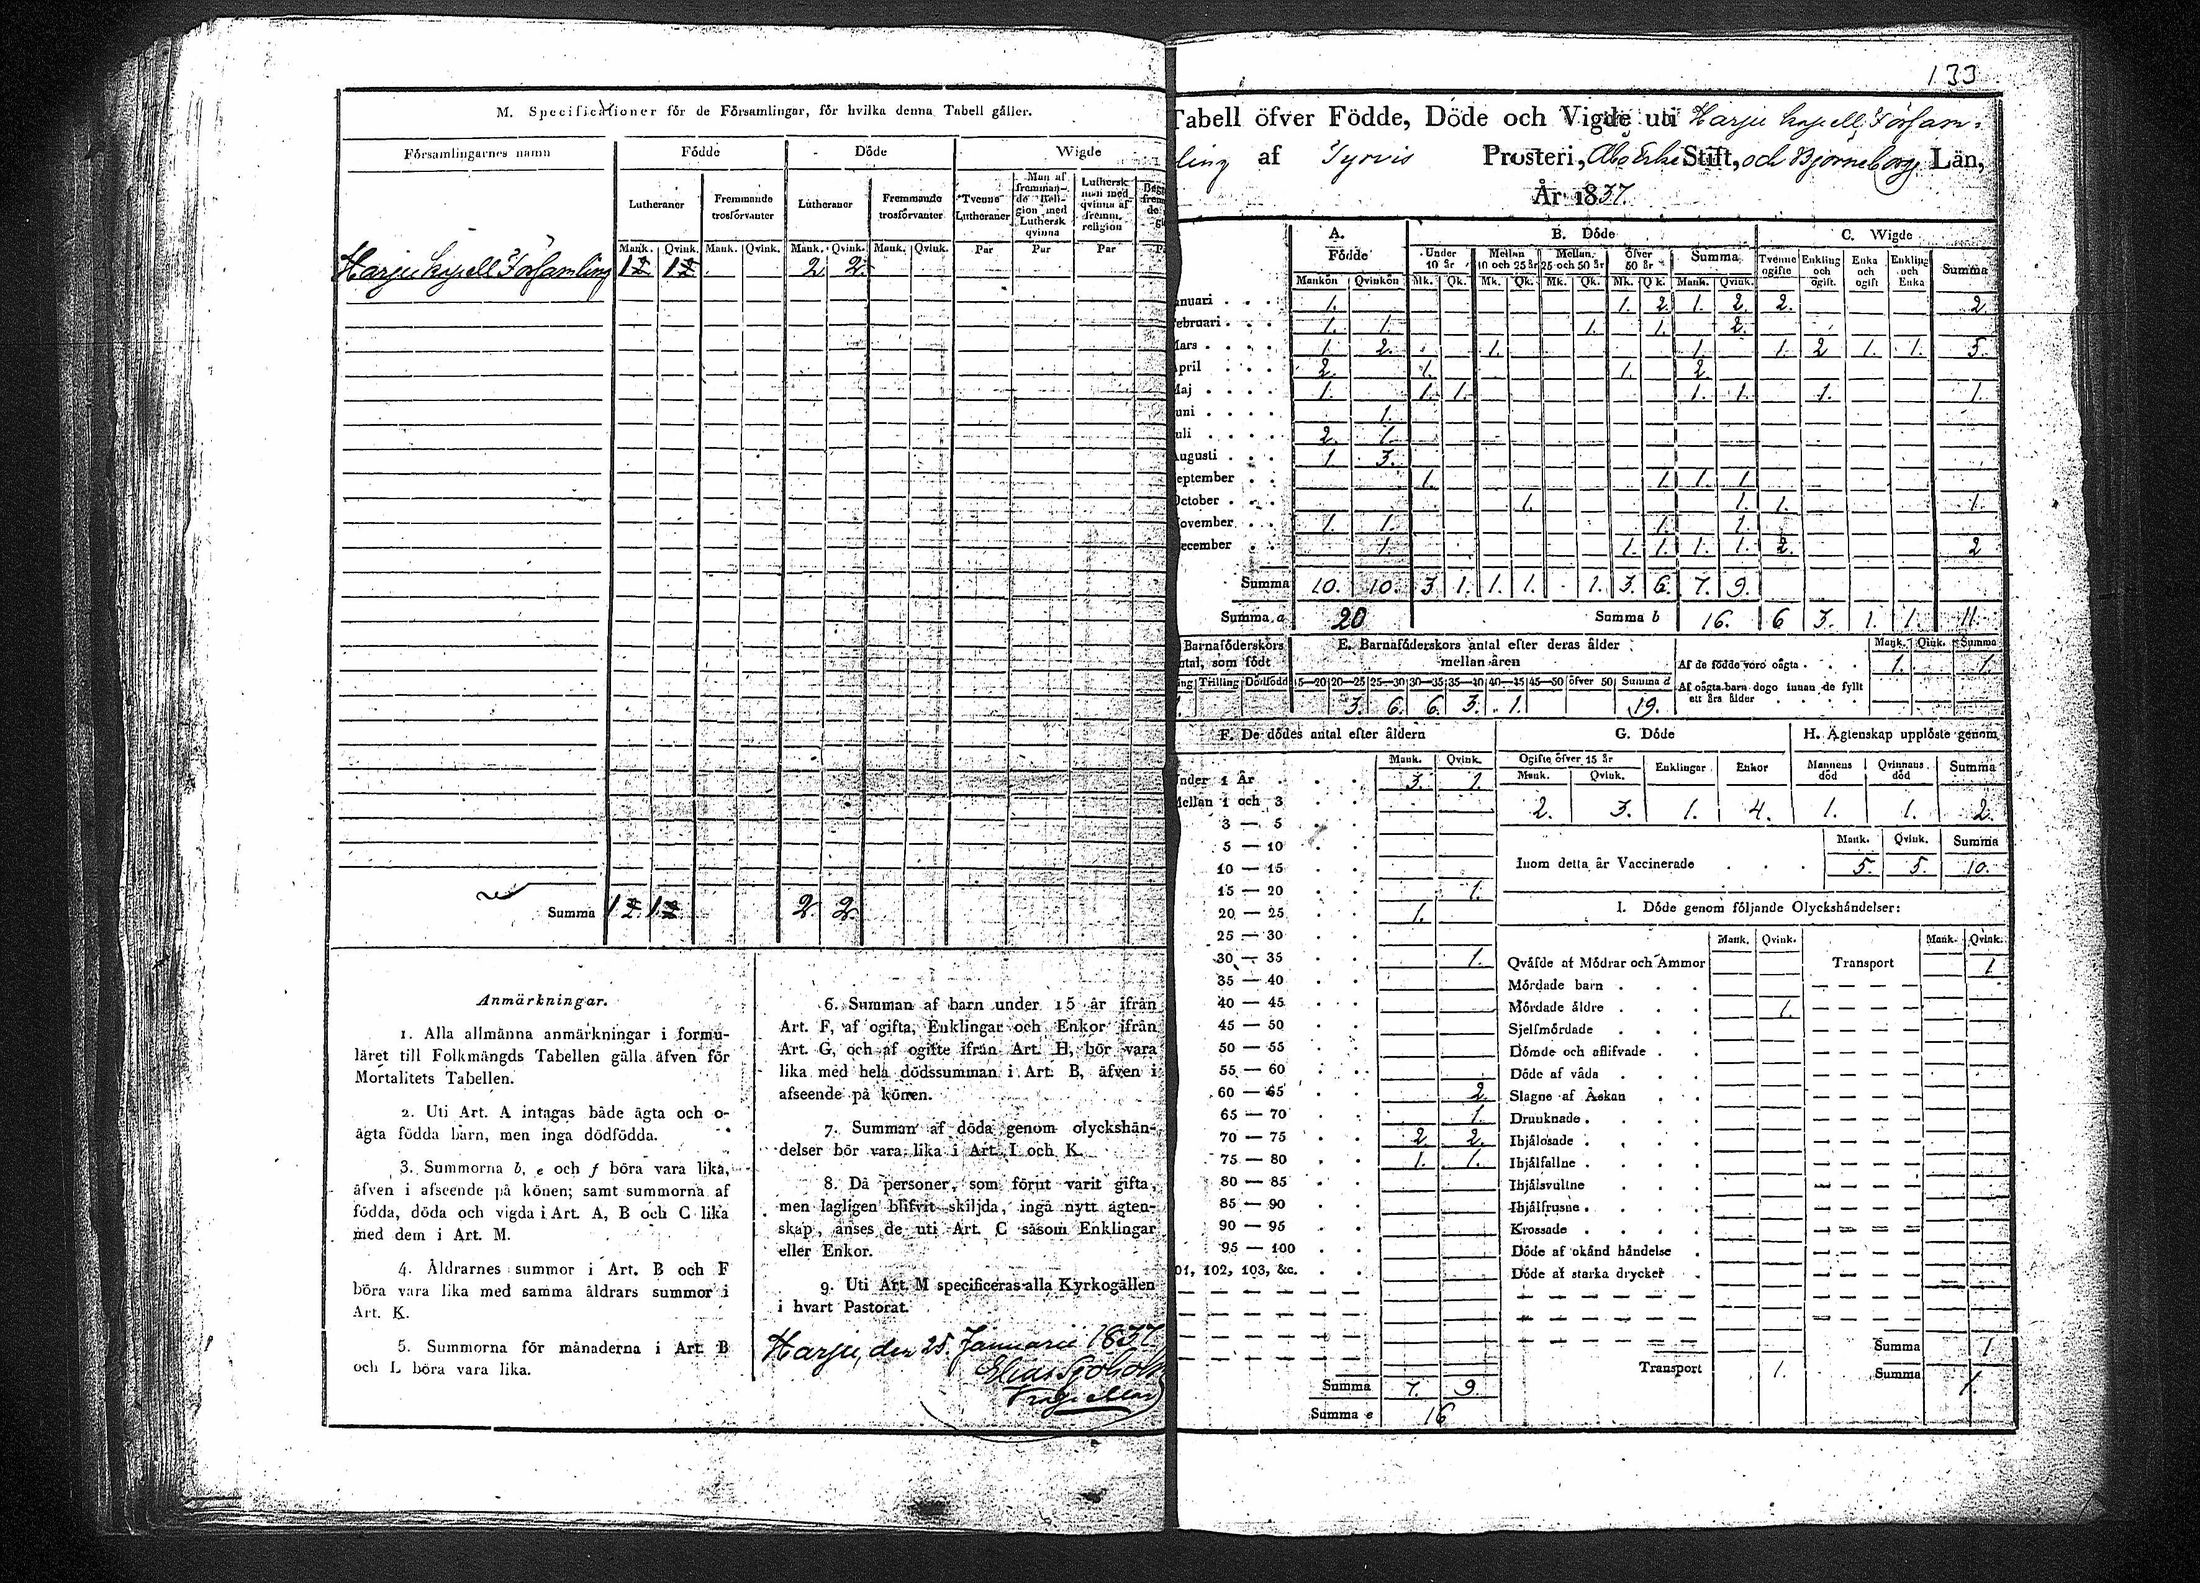 M. Specificationer för de Församlingar, för hvilka denna Tabell gäller.
Församlingarnes namn Födde Döde Wigde
Lutheraner Fremmande trosförvanter Lutheraner Fremmande trosförvanter Tvenne Lutheraner Man af fremmande Religion med Luthersk qvinna Luthersk man med qvinna af fremm. religion
Mank. Qvink. Mank. Qvink. Mank. Qvink. Mank. Qvink. Par Par Par
Harju kapell Församling 12 12 2 2
Summa 12 12 2 2
Anmärkningar.
1. Alla allmänna anmärkningar i formu-
läret till Folkmängds Tabellen gälla äfven för
Mortalitets Tabellen.
2. Uti Art. A intagas både ägta och o-
ägta födda barn, men inga dödfödda.
3. Summorna b, e och f böra vara lika,
äfven i afseende på könen; samt summorna af
födda, döda och vigda i Art. A, B och C lika
med dem i Art. M.
4. Åldrarnes summor i Art. B och F
böra vara lika med samma åldrars summor i
Art. K.
5. Summorna för månaderna i Art. B
och L böra vara lika.
6. Summan af barn under 15 år ifrån
Art. F, af ogifta, Enklingar och Enkor ifrån
Art. G, och af ogifte ifrån Art. H, bör vara
lika med hela dödssumman i Art. B, äfven i
afseende på könen.
7. Summan af döda genom olyckshän-
delser bör vara lika i Art. I och K.
8. Då personer, som förut varit gifta,
men lagligen blifvit skiljda, ingå nytt ägten-
skap, anses de uti Art. C såsom Enklingar
eller Enkor.
9. Uti Art. M specificeras alla Kyrkogällen
i hvart Pastorat.
Harju, den 25 Januarii 1837
133
Tabell öfver Födde, Döde och Vigde uti Harju kapell Församling
ling af Tyrvis Prosteri, Åbo Erke Stift, och Björneborgs Län,
År 1837.
A. B. Döde C. Wigde
Födde Under 10 år Mellan 10 och 25 år Mellan 25 och 50 år Öfver 50 år Summa Tvenne ogifte Enkling och ogift. Enka och ogift Enkling och Enka Summa
Mankön Qvinkön Mk. Qk. Mk. Qk. Mk. Qk. Mk. Qk. Mank. Qvink.
anuari 1. 1. 2. 1. 2. 2. 2.
ebruari 1. 1. 1. 1. 2.
Mars 1. 2. 1. 1. 1. 2 1. 1. 5.
April 2. 1. 1. 2.
Maj 1. 1. 1. 1. 1. 1. 1.
uni 1.
uli 2. 1.
Augusti 1. 3.
eptember 1. 1. 1. 1.
October 1. 1. 1. 1.
ovember 1. 1. 1. 1.
ecember 1. 1. 1. 1. 1. 2. 2
Summa 10. 10. 3. 1. 1. 1. 1. 3. 6. 7. 9.
Summa a 20 Summa b 16. 6 3. 1. 1. 11.
Barnaföderskors E. Barnaföderskors antal efter deras ålder Mank. Qink. Summa
ntal, som födt mellan åren Af de födde voro oägta 1. 1.
ing Trilling Dödfödd 15—20 20—25 25—30 30—35 35—40 40—45 45—50 öfver 50 Summa d Af oägta barn dogo innan de fyllt
1. 3. 6. 6. 3. 1. 19. ett års ålder
F. De dödes antal efter åldern G. Döde H. Ägtenskap upplöste genom
Mank. Qvink. Ogifte öfver 15 år Enklingar Enkor Mannens död Qvinnans död Summa
Under 1 År 3. 1. Mank. Qvink.
Mellan 1 och 3 2. 3. 1. 4. 1. 1. 2.
3 — 5
5 — 10 Mank. Qvink. Summa
10 — 15 Inom detta år Vaccinerade 5. 5. 10.
15 — 20 1.
20 — 25 1. I. Döde genom följande Olyckshändelser:
25 — 30 Mank. Qvink. Mank. Qvink.
30 — 35 1. Qväfde af Mödrar och Ammor Transport 1
35 — 40 Mördade barn
40 — 45 Mördade äldre 1.
45 — 50 Sjelfmördade
50 — 55 Dömde och aflifvade
55 — 60 Döde af våda
60 — 65 2. Slagne af Åskan
65 — 70 1. Drunknade
70 — 75 2. 2. Ihjälosade
75 — 80 1. 1. Ihjälfallne
80 — 85 Ihjälsvultne
85 — 90 Ihjälfrusne
90 — 95 Krossade
95 — 100 Döde af okänd händelse
01, 102, 103, &c. Döde af starka drycker
Summa 1
Transport 1. Summa 1.
Summa 7. 9.
Summa e 16